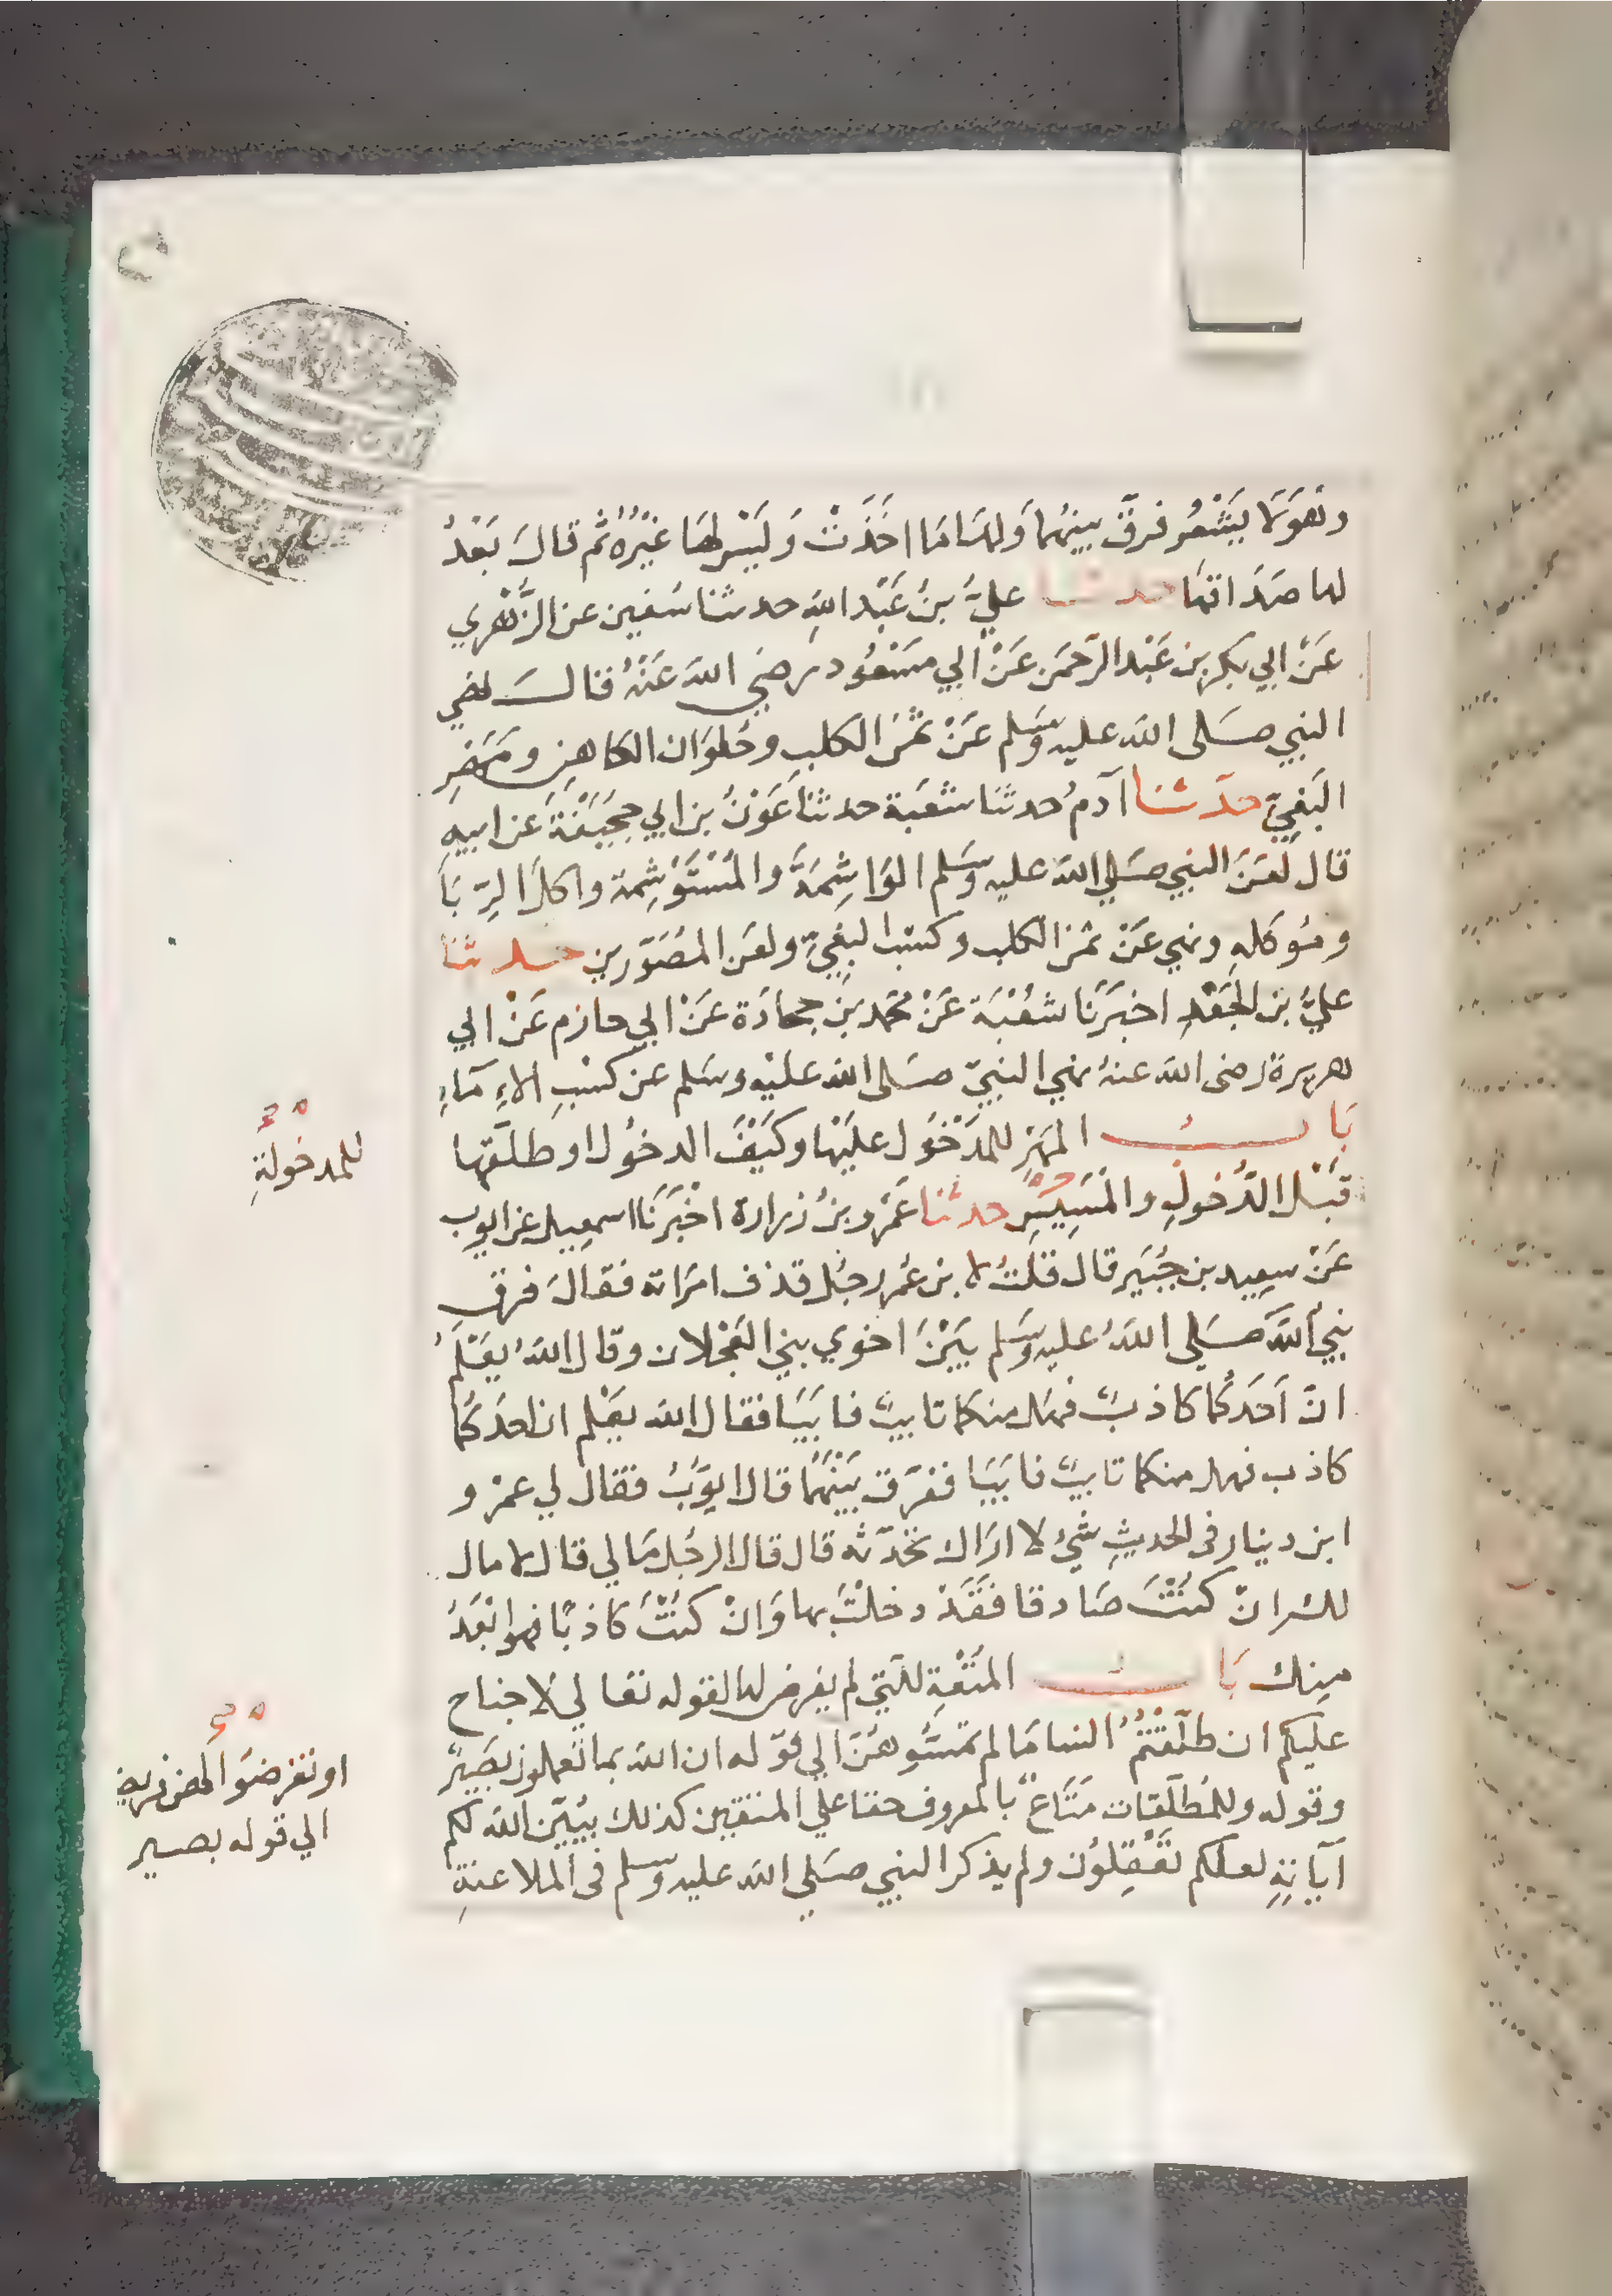 وَهُوَ لَا يَشْعُر فرقَ بينهُمَا وَلهَا مَا اخَذَتْ وَ لَيْسَ لهَا غَيْرُهُ ثم قالَ بَعْدُ
لها صَدَاقهَا حدثنا عليُّ بنُ عَبْد اللهِ حدثنا سُفين عن الزُّهْري
عَنْ ابي بكر بن عَبْد الرَّحمَن عَنْ ابي مسْعُود رضيَ اللهُ عَنْهُ قالَ نهي
النبي صَلى الله عليه وَسَلم عَنْ ثمَن الكلبِ وحُلوَان الكاهِنِ وَمَهْرِ
البَغِيِّ حدَثنا آدمُ حدثنا شعبَة حدثنا عَوْنُ بن ابي جُحَيْفَةَ عَن ابيهِ
قال لَعَنَ النبي صَلي الله عليه وَسَلم الوَاشِمَةَ والمُسْتَوْشِمة واكلَ الرِّبَا
ومُوكلهِ ونهي عَنْ ثمن الكلب وكسْب البغِيِّ ولعَن المُصَوّرين حدثنا
عليُّ بن الجَعْدِ اخبَرَنَا شعْبَة عَنْ محَمد بن جحادَة عَنْ ابي حازم عَنْ ابي
هريرة رَضى الله عنهُ نهي النبيّ صَلى الله عليْه وسَلم عن كسْبِ الاِمَآءِ
بَابُ المَهْرِ للمَدْخُول عليْها وكيْفَ الدخُول او طلقها
قبْل الدُّخولِ والمَسِيْسِ حدثنا عَمْرو بنُ زرارة اخْبَرَنَا اسمعِيل عن ايوب
عَنْ سعِيد بن جُبَيْر قال قلتُ لا بن عُمَر رجُل قذف امرَاته فقالَ فرقَ
نبيُّ اللهِ صَلي اللهُ عليه وَسَلم بَيْنَ اخوي بني العَجْلان وقال اللهُ يعْلَمُ
انّ اَحَدَكُمَا كاذبٌ فهَل منكما تايبٌ فابَيَا فقال الله يعْلم ان احَدكُمَا
كاذب فهل منكما تايبٌ فابَيَا ففرَّق بَيْنَهُمَا قال ايوَّبُ فقال لي عمْرو
ابن دينار فى الحديثِ شيْءٌ لا ارَاك تحَدّثه قال قال الرجُل مَا لي قال لا مال
لك ان كنْتَ صَادقا فَقَدْ دخلْتَ بها وَانْ كنْتَ كاذبًا فهو ابْعَدُ
مِنك بَابُ المتْعَةِ للتي لم يفرض لها لقوله تعا لي لا جناح
عليكم ان طلَّقْتُمُ النسا مَا لم تمَسُّوهُنَّ الي قوْ له ان الله بما تعملون بصَيرٌ
وقوله وللمُطَلّقات مَتَاعٌ بالمعروف حقا علي المتقين كذلك يبيّن الله لكم
آيَاتِهِ لعلكم تعْقِلُون ولم يذكر النبي صَلي الله عليه وسلم فى الملاعنةِ
للمدخولةِ
او تفرضوا لهن فريضة
الي قوله بصير